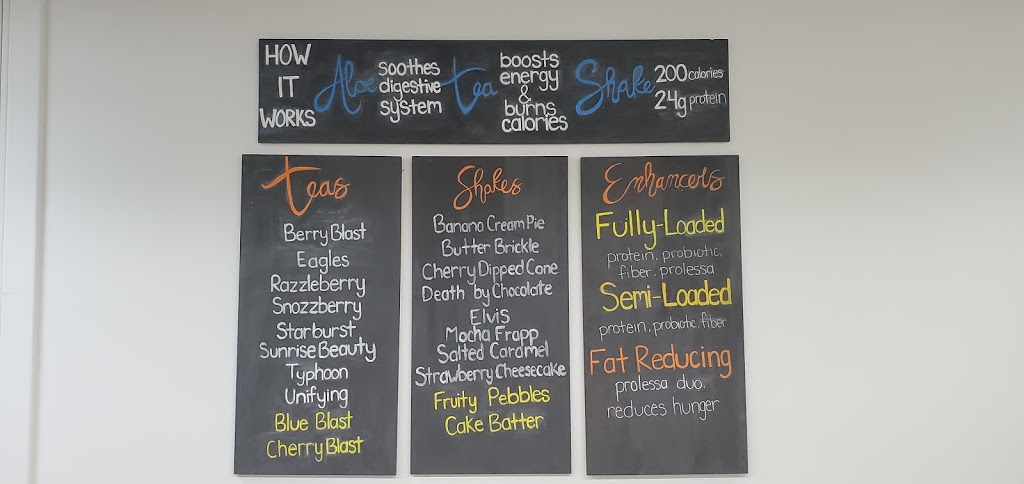 HOW
IT
WORKS
Aloe
soothes
digestive
system
tea
boosts
energy
&
burns
calories
Shake
200 calories
24g protein
Teas
Berry Blast
Eagles
Razzleberry
Snozzberry
Starburst
Sunrise Beauty
Typhoon
Unifying
Blue Blast
Cherry Blast
Shakes
Banana Cream Pie
Butter Brickle
Cherry Dipped Cone
Death by Chocolate
Elvis
Mocha Frapp
Salted Caramel
Strawberry Cheesecake
Fruity Pebbles
Cake Batter
Enhancers
Fully-Loaded
protein, probiotic,
fiber, prolessa
Semi-Loaded
protein, probiotic, fiber
Fat Reducing
prolessa duo,
reduces hunger